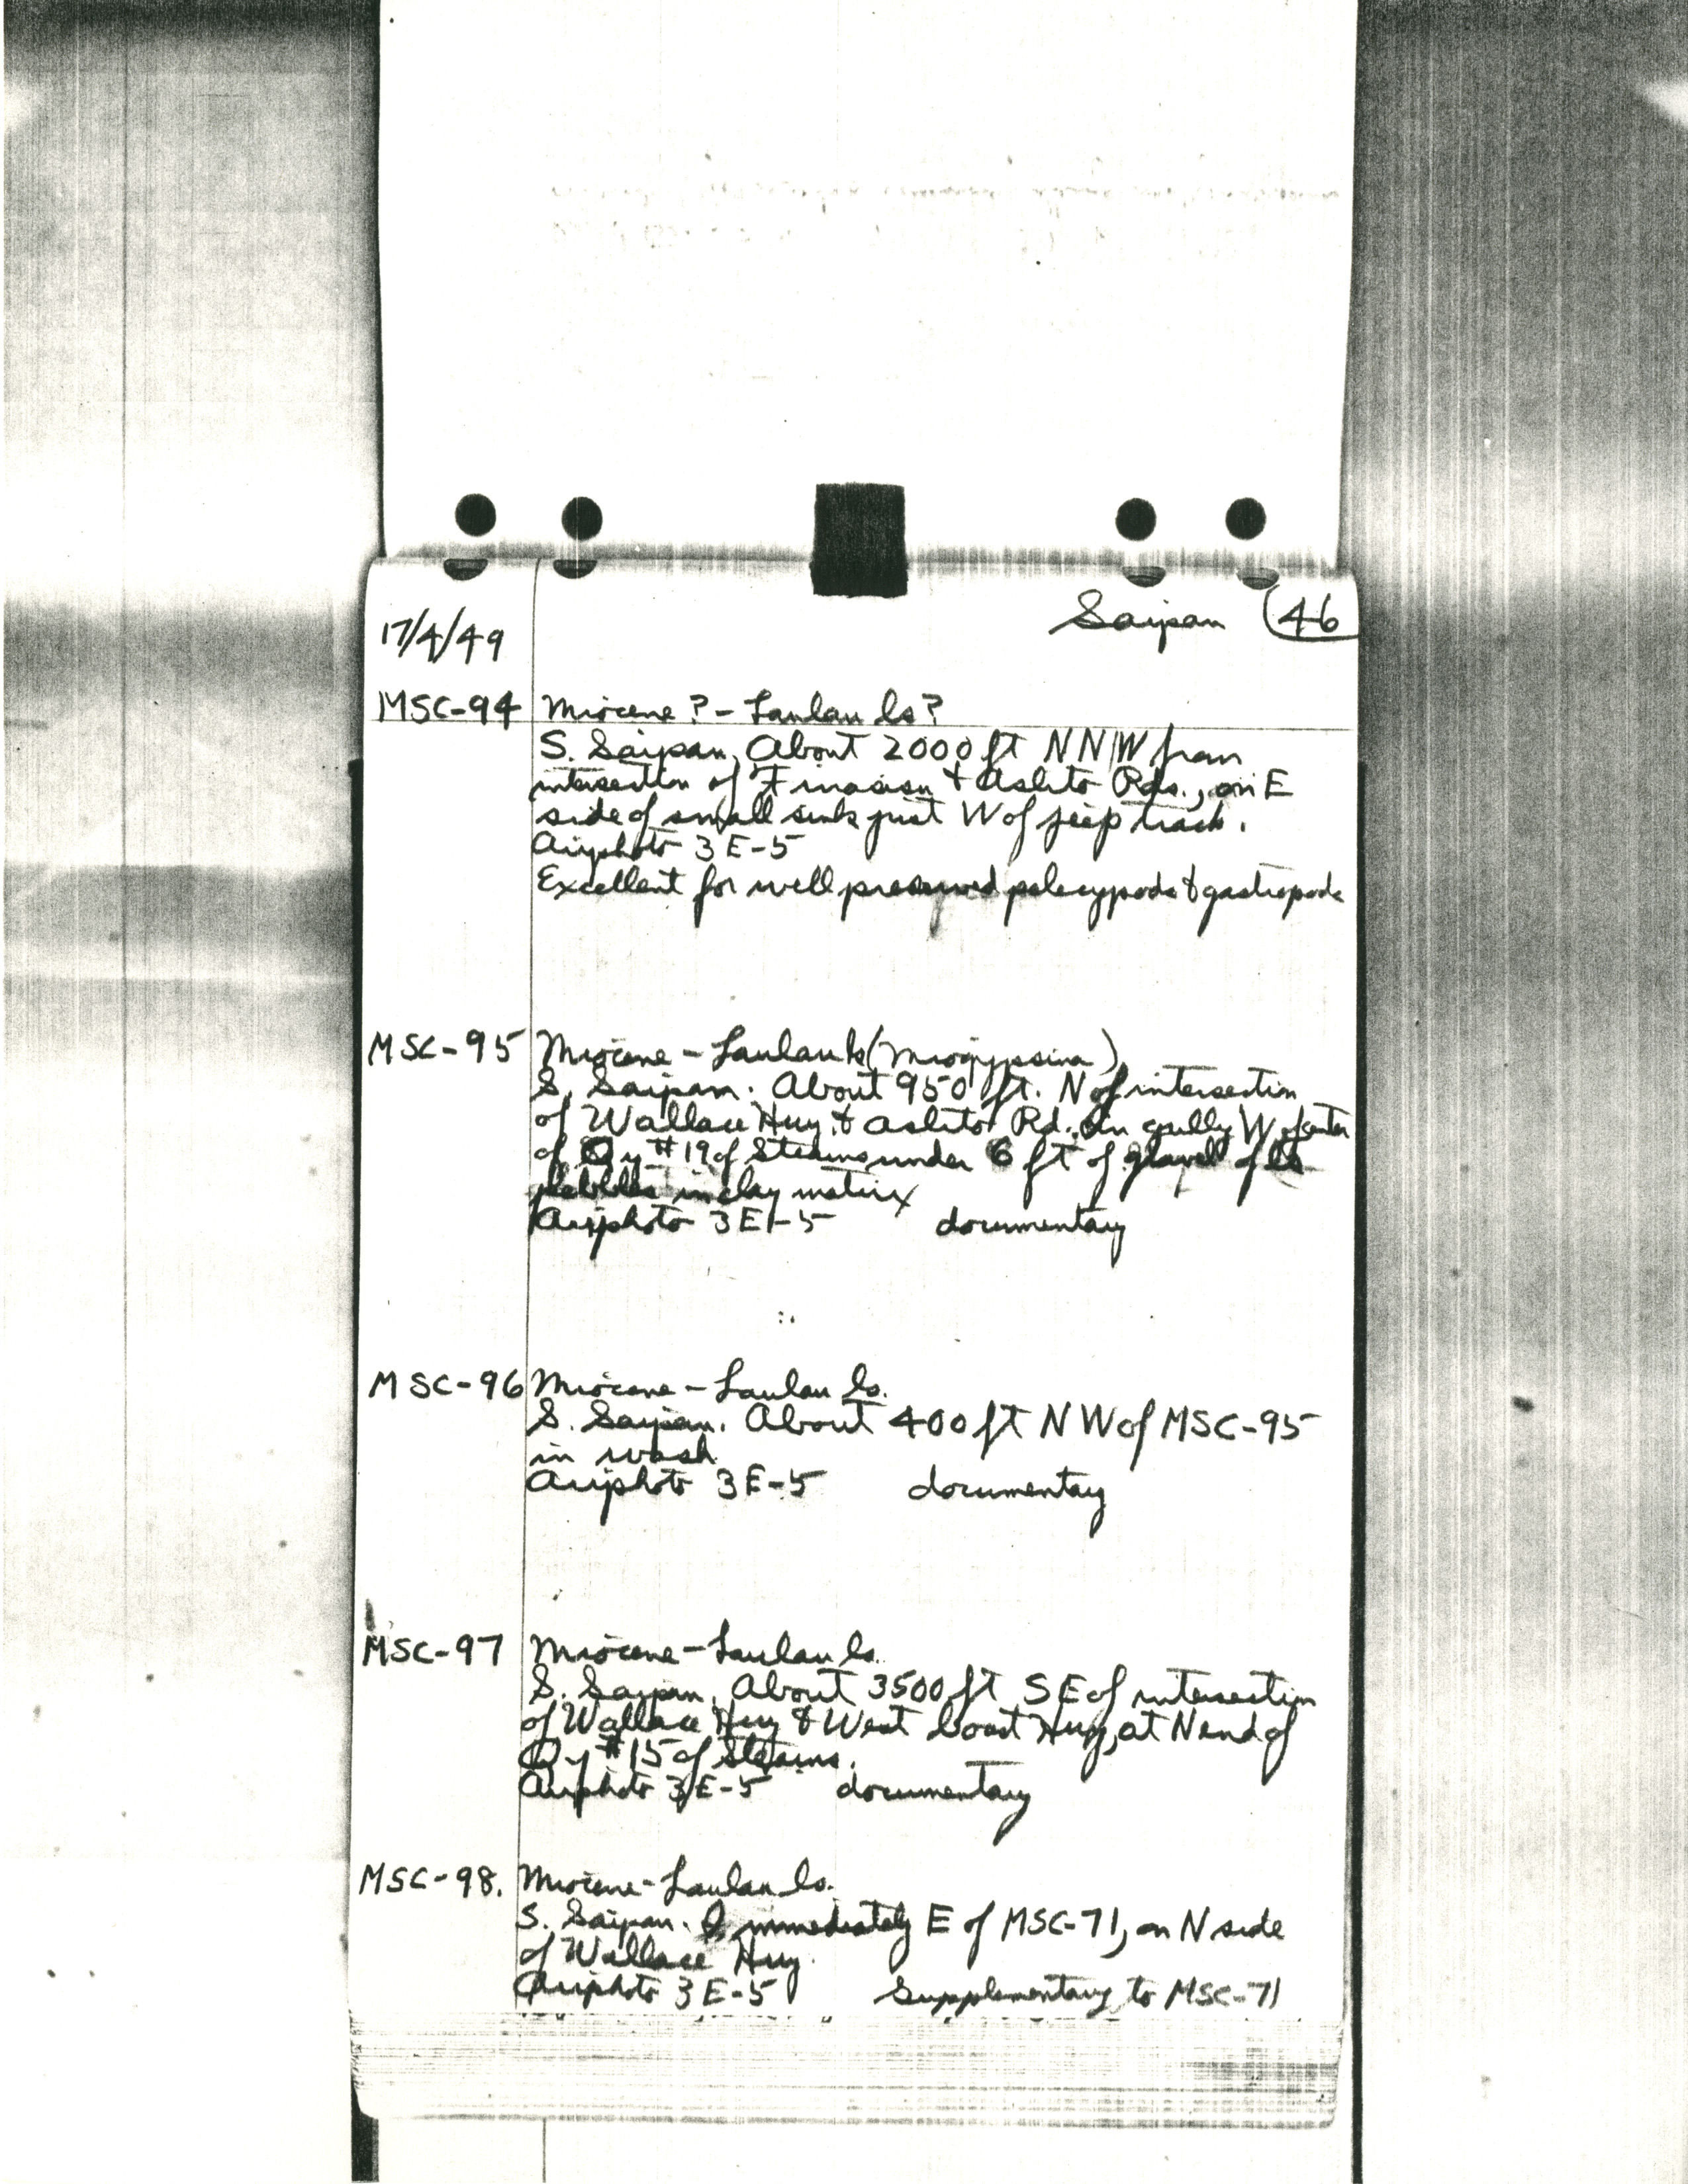 17/4/49
Saipan 46
MSC-94 Miocene? - Laulau ls?
S. Saipan. About 2000 ft NNW from
intersection of Finasisu & Aslito Rds., on E
side of small sink just W of jeep track.
Airphoto 3E-5
Excellent for well preserved pelecypods & gastropods
MSC-95 Miocene - Laulau ls (Miogypsina)
S. Saipan. About 950 ft. N of intersection
of Wallace Hwy. & Aslito Rd. in gully W of center
of Qy #19 of Stearns under 6 ft of gravel of ls
pebbles in clay matrix
Airphoto 3E-5 documentary
MSC-96 Miocene - Laulau ls.
S. Saipan. About 400 ft NW of MSC-95
in wash
Airphoto 3E-5 documentary
MSC-97 Miocene - Laulau ls.
S. Saipan. About 3500 ft SE of intersection
of Wallace Hwy & West Coast Hwy, at N end of
Qy #15 of Stearns.
Airphoto 3E-5 documentary
MSC-98. Miocene - Laulau ls.
S. Saipan. Immediately E of MSC-71, on N side
of Wallace Hwy.
Airphoto 3E-5 Supplementary to MSC-71